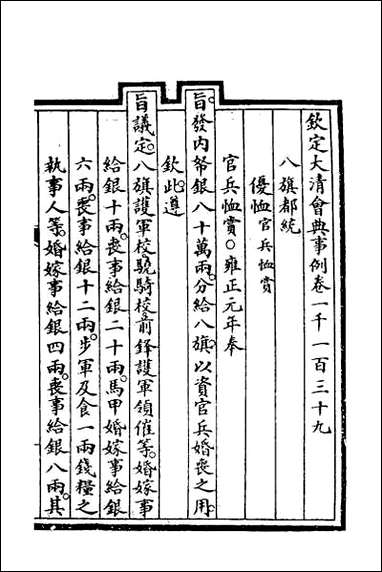 欽定大清會典事例卷一千一百三十九
八旗都統
優恤官兵恤賞
官兵恤賞○雍正元年奉
旨發內帑銀八十萬兩分給八旗以資官兵婚喪之用
欽此遵
旨議定八旗護軍校驍騎校前鋒護軍領催等婚嫁事
給銀十兩喪事給銀二十兩馬甲婚嫁事給銀
六兩喪事給銀十二兩步軍及食一兩錢糧之
執事人等婚嫁事給銀四兩喪事給銀八兩其